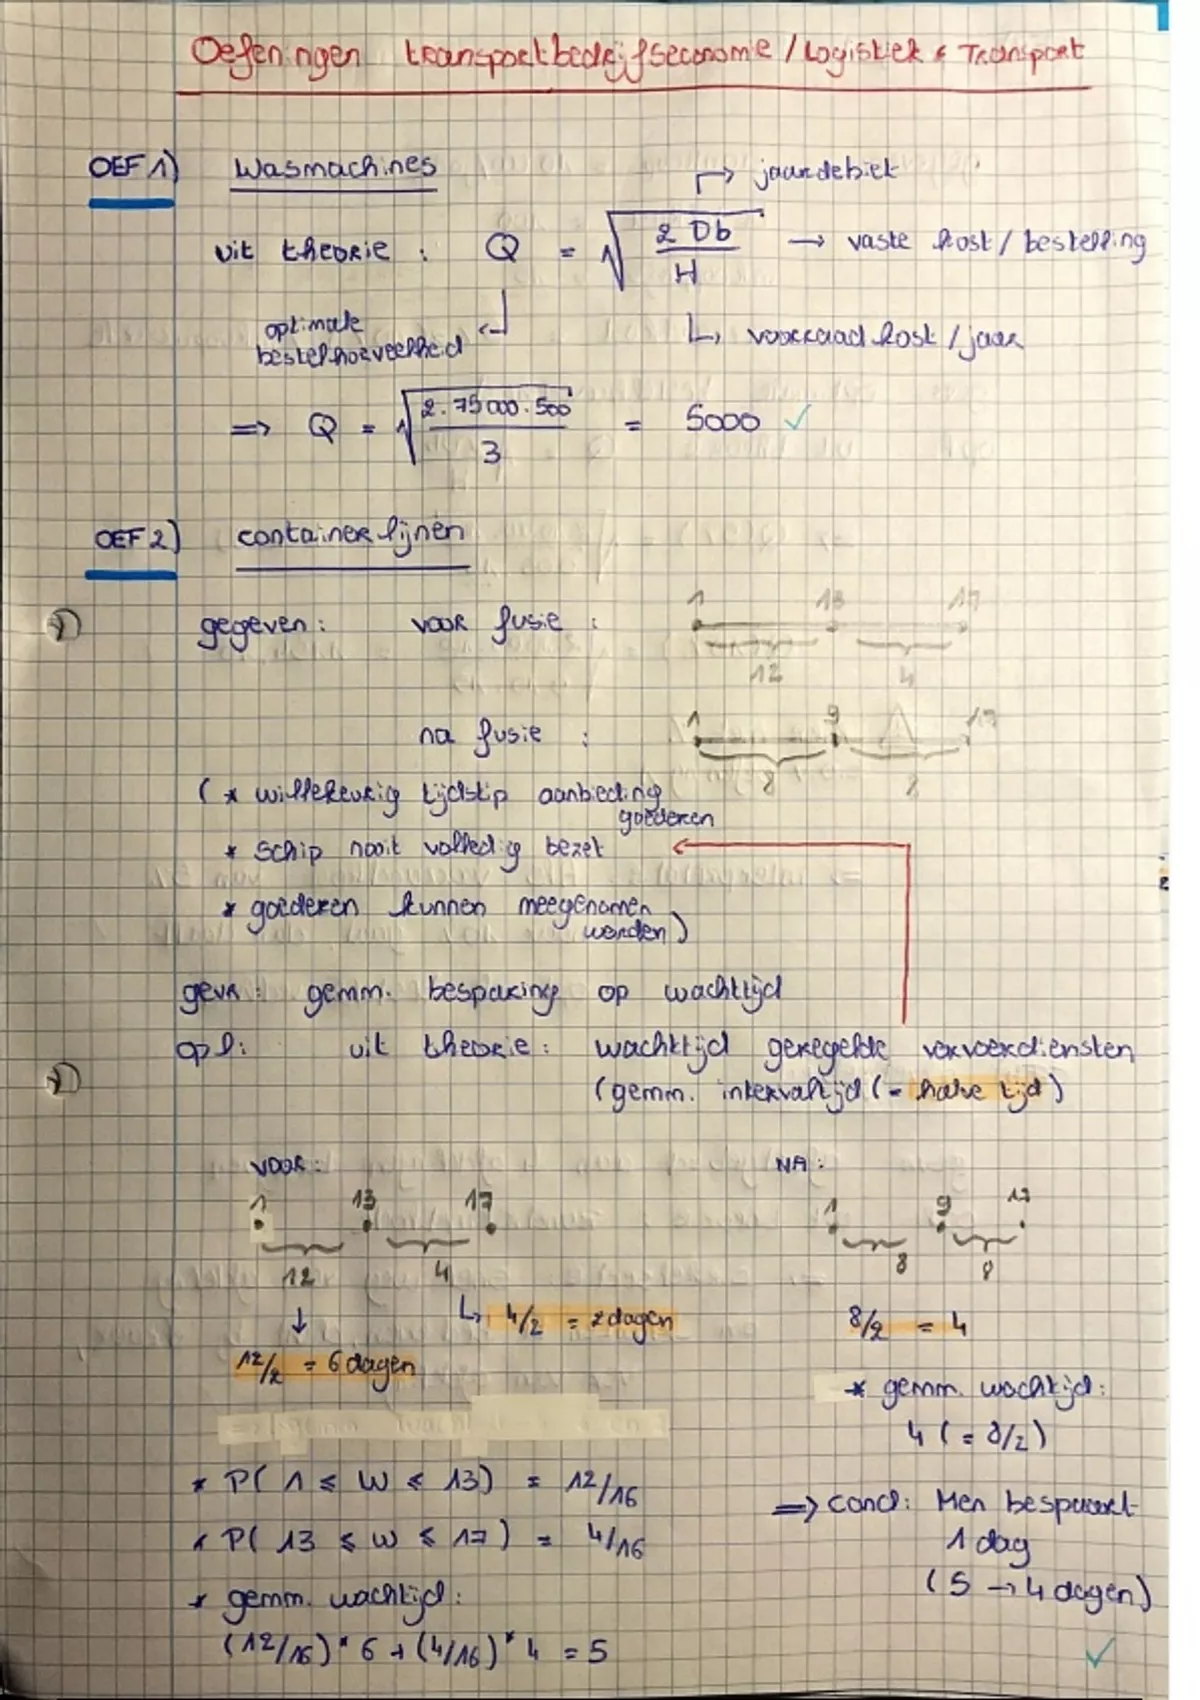 Oefeningen transportbedrijfseconomie / Logistiek & Transport
OEF 1) Wasmachines
→ jaardebiet
uit theorie : Q = √ 2 Db / H → vaste kost / bestelling
optimale bestelhoeveelheid
↳ voorraadkost / jaar
=> Q = √ 2. 75000. 500 / 3 = 5000 ✓
OEF 2) containerlijnen
gegeven : voor fusie : 1 13 17
12 4
na fusie : 1 9 17
8 8
( * willekeurig tijdstip aanbieding goederen
* schip nooit volledig bezet
* goederen kunnen meegenomen worden )
gevr : gemm. besparing op wachttijd
opl : uit theorie : wachttijd geregelde vervoerdiensten
(gemm. intervaltijd (= halve tijd)
VOOR : NA :
1 13 17 1 9 17
12 4 8 8
↓ ↳ 4/2 = 2 dagen 8/2 = 4
12/2 = 6 dagen
* gemm. wachtijd :
4 ( = 8/2 )
* P( 1 ≤ W ≤ 13) = 12/16
=> concl : Men bespaart
* P( 13 ≤ W ≤ 17 ) = 4/16
1 dag
* gemm. wachtijd :
( 5 → 4 dagen )
(12/16) * 6 + (4/16) * 4 = 5 ✓